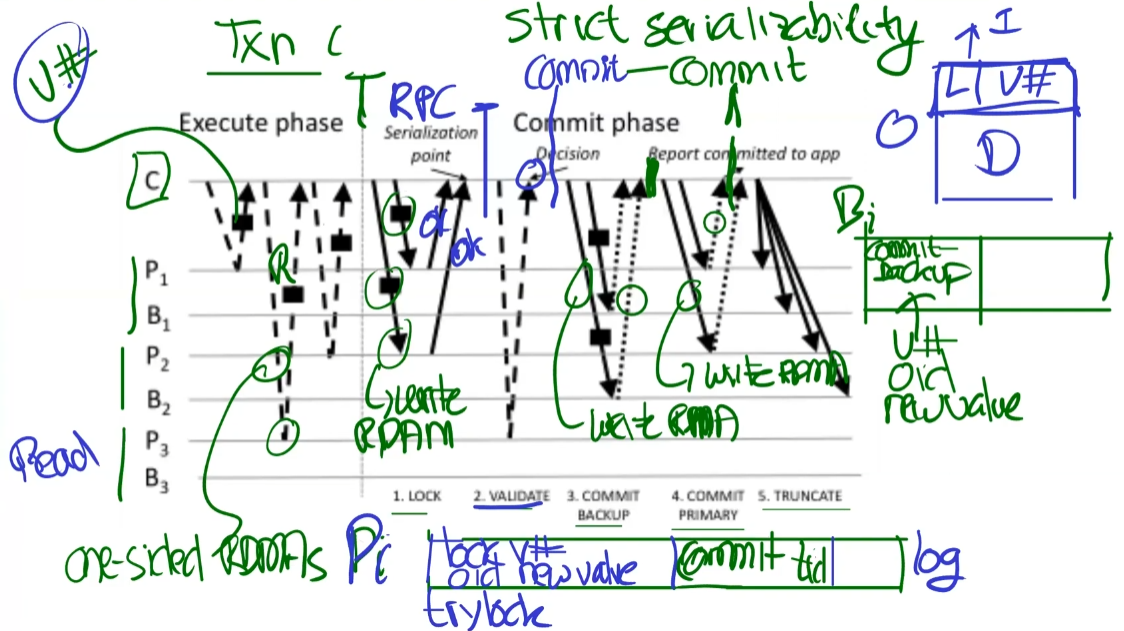 Txn C
Strict serializability
V#
T RPC
Commit — commit
↑ I
L V#
O
D
Execute phase
Serialization
point
Commit phase
Decision
Report committed to app
C
ok
ok
R
P1
B1
P2
B2
P3
B3
Read
write
RDAM
write RDMA
write RDMA
Bi
commit-
backup
V#
oid
new value
1. LOCK
2. VALIDATE
3. COMMIT
BACKUP
4. COMMIT
PRIMARY
5. TRUNCATE
one-sided RDMAs
Pi
lock V#
oid new value
commit tid
log
trylock